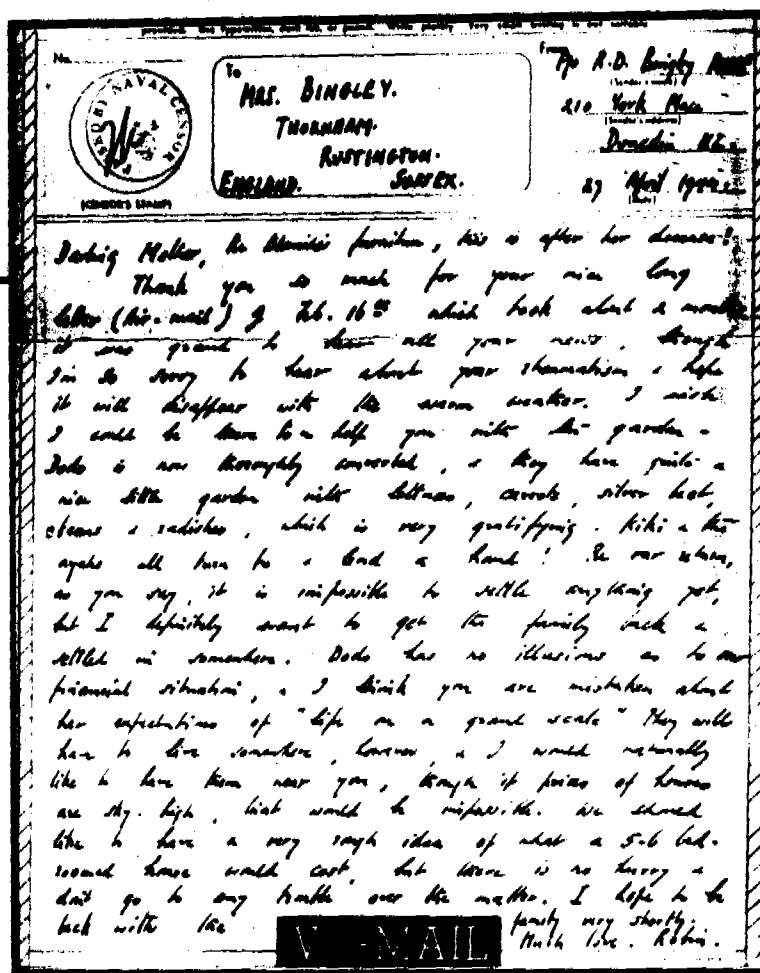 No.
PASSED BY NAVAL CENSOR
(CENSOR'S STAMP)
To
MRS. BINGLEY.
THORNHAM.
RUSTINGTON.
ENGLAND. SUSSEX.
From
A.D. Bingley
(Sender's name)
210 York Place
(Sender's address)
Dunedin N.Z.
27 April
(Date)
Darling Mother, Re furniture, this is after her decease!
Thank you so much for your nice long
letter (Air-mail) of Feb. 16th which took about 2 months
it was grand to hear all your news, though
I'm so sorry to hear about your rheumatism & hope
it will disappear with the warm weather. I wish
I could be home to help you with the garden -
Dodo is now thoroughly converted, & they have quite a
nice little garden with lettuces, carrots, silver beet,
beans & radishes, which is very gratifying. Kiki & the
ayahs all turn to & lend a hand! Re our return,
as you say, it is impossible to settle anything yet,
but I definitely want to get the family back &
settled in somewhere. Dodo has no illusions as to our
financial situation, & I think you are mistaken about
her expectations of "life on a grand scale" They will
have to live somewhere, however, & I would naturally
like to have them near you, though if prices of houses
are sky-high, that would be impossible. We should
like to have a very rough idea of what a 5-6 bed-
roomed house would cost, but there is no hurry &
don't go to any trouble over the matter. I hope to be
back with the family very shortly.
Much love. Robin.
V-MAIL